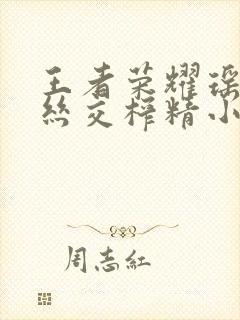 王者荣耀瑶
丝交榨精小
周志红